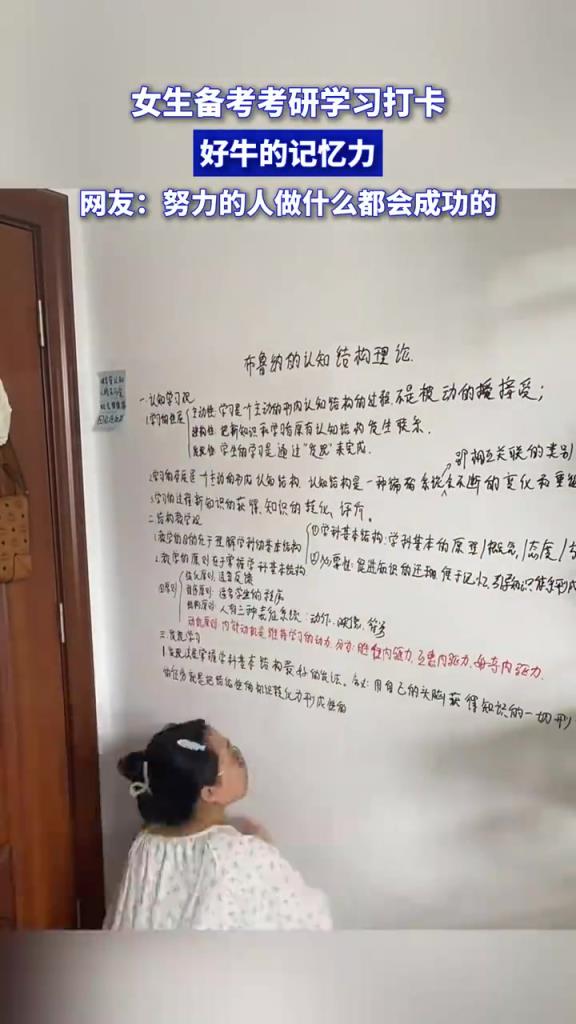 女生备考考研学习打卡
好牛的记忆力
网友：努力的人做什么都会成功的
布鲁纳的认知结构理论.
一.认知学习观
1.学习的性质
主动性:学习是个主动的形成认知结构的过程,不是被动的接受;
建构性:把新知识和学习者原有认知结构发生联系.
发现性:学生的学习是通过“发现”来完成.
即相互关联的类别
2.学习的实质是一个主动的形成认知结构.认知结构是一种编码系统,不断的变化和重组
3.学习的过程:新知识的获得,知识的转化,评价。
二.结构教学观
1.教学的目的在于理解学科的基本结构
①学科基本结构:学科基本的原理/概念/态度/
②必要性:促进知识的迁移,便于记忆,
2.教学的原则在于掌握学科基本结构
③原则
强化原则:适当反馈
程序原则:适合学生的程序
结构原则:人有三种表征系统:动作,映像,符号
动机原则:内部动机是维持学习的动力.分为:胜任内驱力,互惠内驱力,好奇内驱力.
三.发现学习
1.发现法是掌握学科基本结构最好的方法。含义:用自己的头脑获得知识的一切形